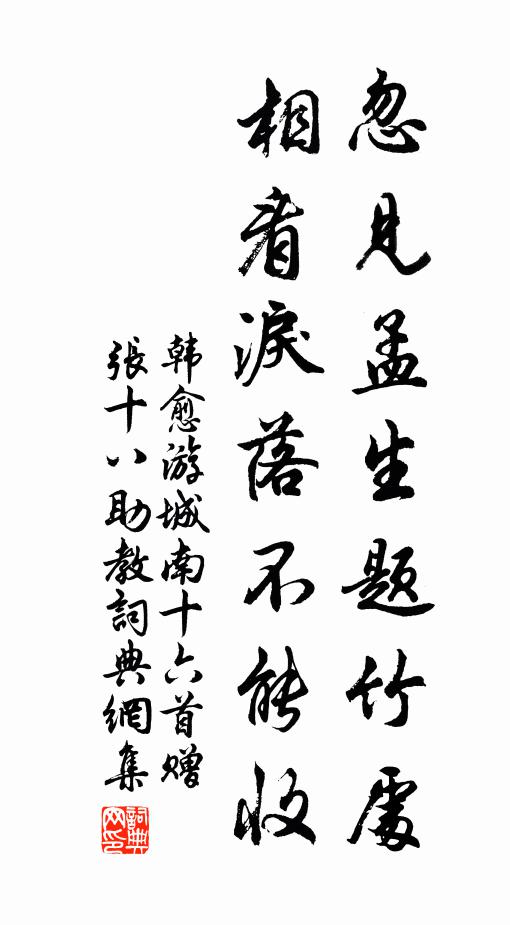 忽见孟生题竹處
相看淚落不能收
韩愈游城南十六首赠
張十八助教詞典網集
詞典网印